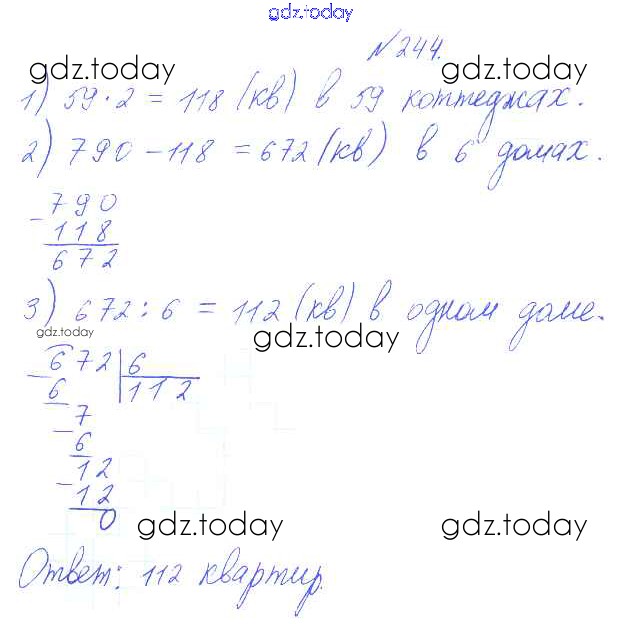 gdz.today
№ 244.
gdz.today gdz.today
1) 59·2 = 118 (кв) в 59 коттеджах.
2) 790 – 118 = 672 (кв) в 6 домах.
– 790
118
672
3) 672 : 6 = 112 (кв) в одном доме.
gdz.today gdz.today
– 672 | 6
6 112
– 7
6
– 12
12
0
gdz.today gdz.today
Ответ: 112 квартир.